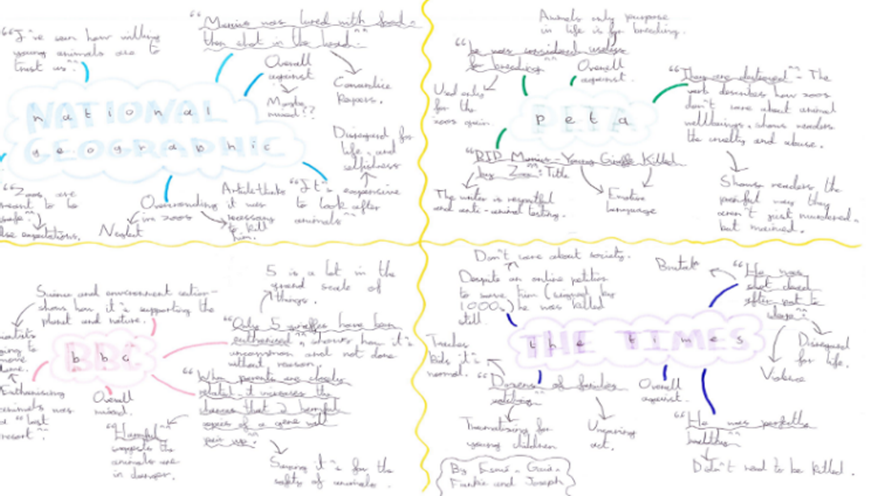 "I've seen how willing
young animals are to
trust us."
"Marius was lured with food -
then shot in the head."
Overall
against
Maybe
mixed??
Comandice
Rapers.
NATIONAL
GEOGRAPHIC
national
geographic
Disregard for
life, and
selfishness
"Zoos are
meant to be
safe."
expectations.
Overcrowding
in zoos
Neglect
it was
necessary
to kill
him.
"It's expensive
to look after
animals"
Animals only purpose
in life is for breeding.
"he was considered useless
for breeding"
Overall
against.
Used only
for the
zoos gain.
PETA
peta
The
work describes how zoos
don't care about animal
wellbeing, shows readers
the cruelty and abuse.
"RIP Marius - Young Giraffe Killed
by Zoo": Title
The writer is respectful
and anti-animal testing.
Emotive
language
Shows readers the
painful way they
aren't just murdered -
but maimed.
Science and environment section -
shows how it's supporting the
planet and nature.
5 is a lot in the
grand scale of
things.
BBC
bbc
"Only 5 giraffes have been
euthanised", shows how it's
uncommon and not done
without reason.
Euthanising
animals was
a "last
resort".
Overall
mixed.
"When parents are closely
related, it increases the
chances that 2 harmful
copies of a gene will
pair up."
"Harmful"
suggests the
animals are
in danger.
Saying it's for the
safety of animals.
Don't care about society.
Despite an online petition
to save him (signed by
1000s) he was killed
still
Brutal
"He was
shot dead
after
THE TIMES
the times
Teaches
kids it's
normal.
Disregard
for life.
Violence
"Dozens of families
watching"
Overall
against.
Traumatising for
young children
Uncaring
act.
"He was perfectly
healthy"
Didn't need to be killed.
By Esmé - Guin -
Frankie and Joseph